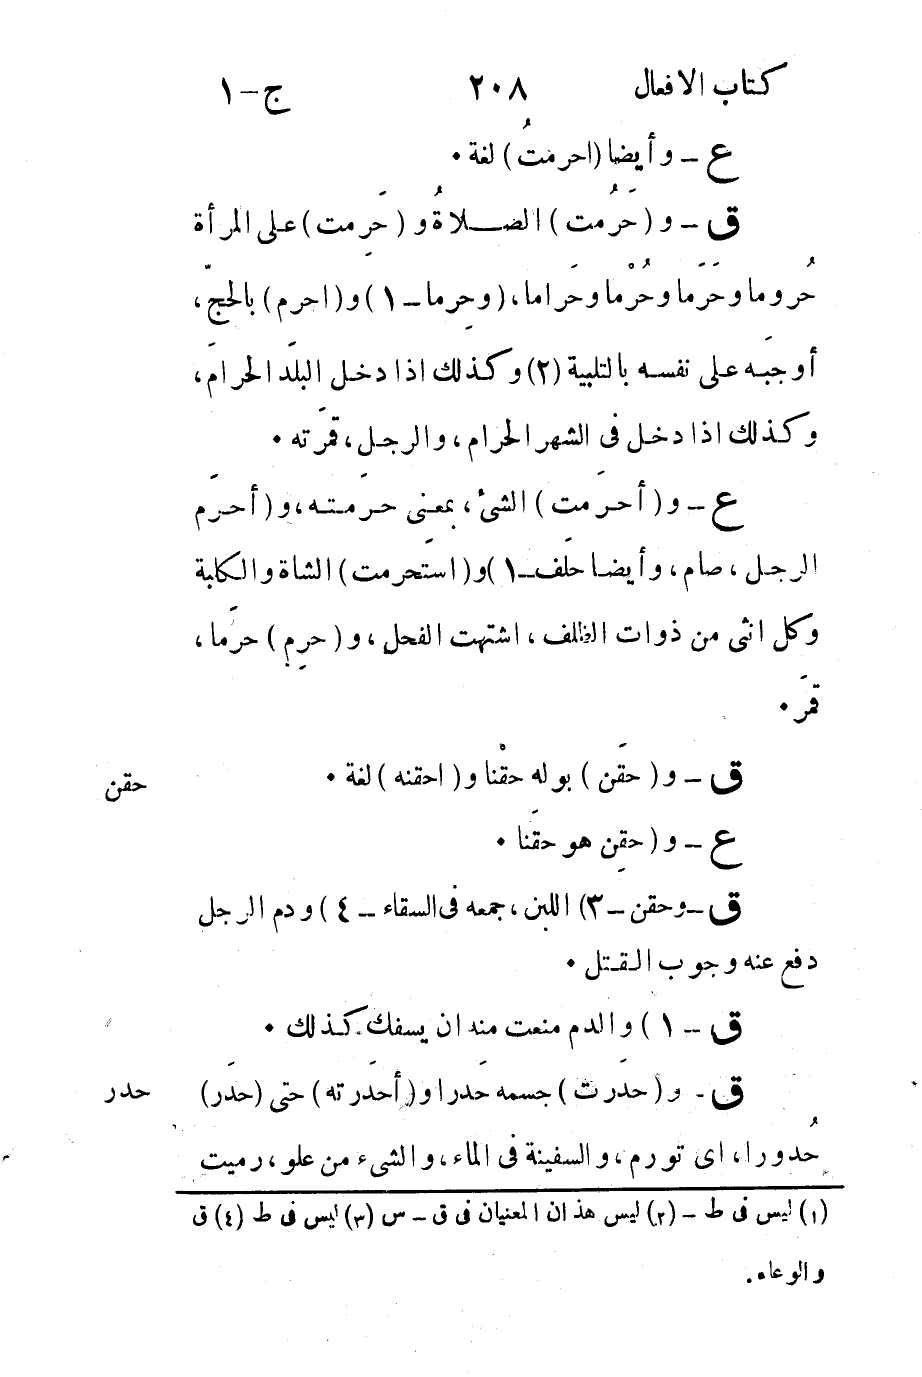 كتاب الافعال ٢٠٨ ج-١
ع – وأيضا (احرمتُ) لغة ٠
ق – و (حَرُمت) الصلاةُ و (حَرِمت) على المرأة
حُروما وحَرَما وحُرْما وحَراما، (وحِرما – ١) و(احرم) بالحجّ،
أوجَبه على نفسه بالتلبية (٢) وكذلك اذا دخل البلَد الحرامَ،
وكذلك اذا دخل فى الشهر الحرام، والرجل، قمَرته ٠
ع – و (أحرَمت) الشئ، بمعنى حرَمتـه، و(أحرَم
الرجل، صام، وأيضا حلَف – ١) و(استَحرمت) الشاة والكلبة
وكل انثى من ذوات الظلف، اشتهت الفحل، و(حرِم) حرَما،
قمَر ٠
ق – و (حقَن) بوله حقْنا و(احقنه) لغة ٠
حقن
ع – و (حقِن هو حقَنا ٠
ق – وحقن – ٣) اللبن، جمعه فى السقاء – ٤) ودم الرجل
دفع عنه وجوب القتل ٠
ق – ١) والدم منعت منه ان يسفك كذلك ٠
ق - و (حدَرت) جسمه حَدرا و(أحدَرته) حتى (حدَر)
حدر
حُدورا، اى تورم، والسفينة فى الماء، والشىء من علو، رميت
(١) ليس فى ط – (٢) ليس هذان المعنيان فى ق – س (٣) ليس فى ط (٤) ق
والوعاء.